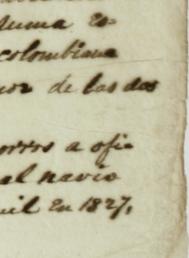 suma es-
colombiana
nor de las dos
orros a ofi-
al navio
il en 1827,